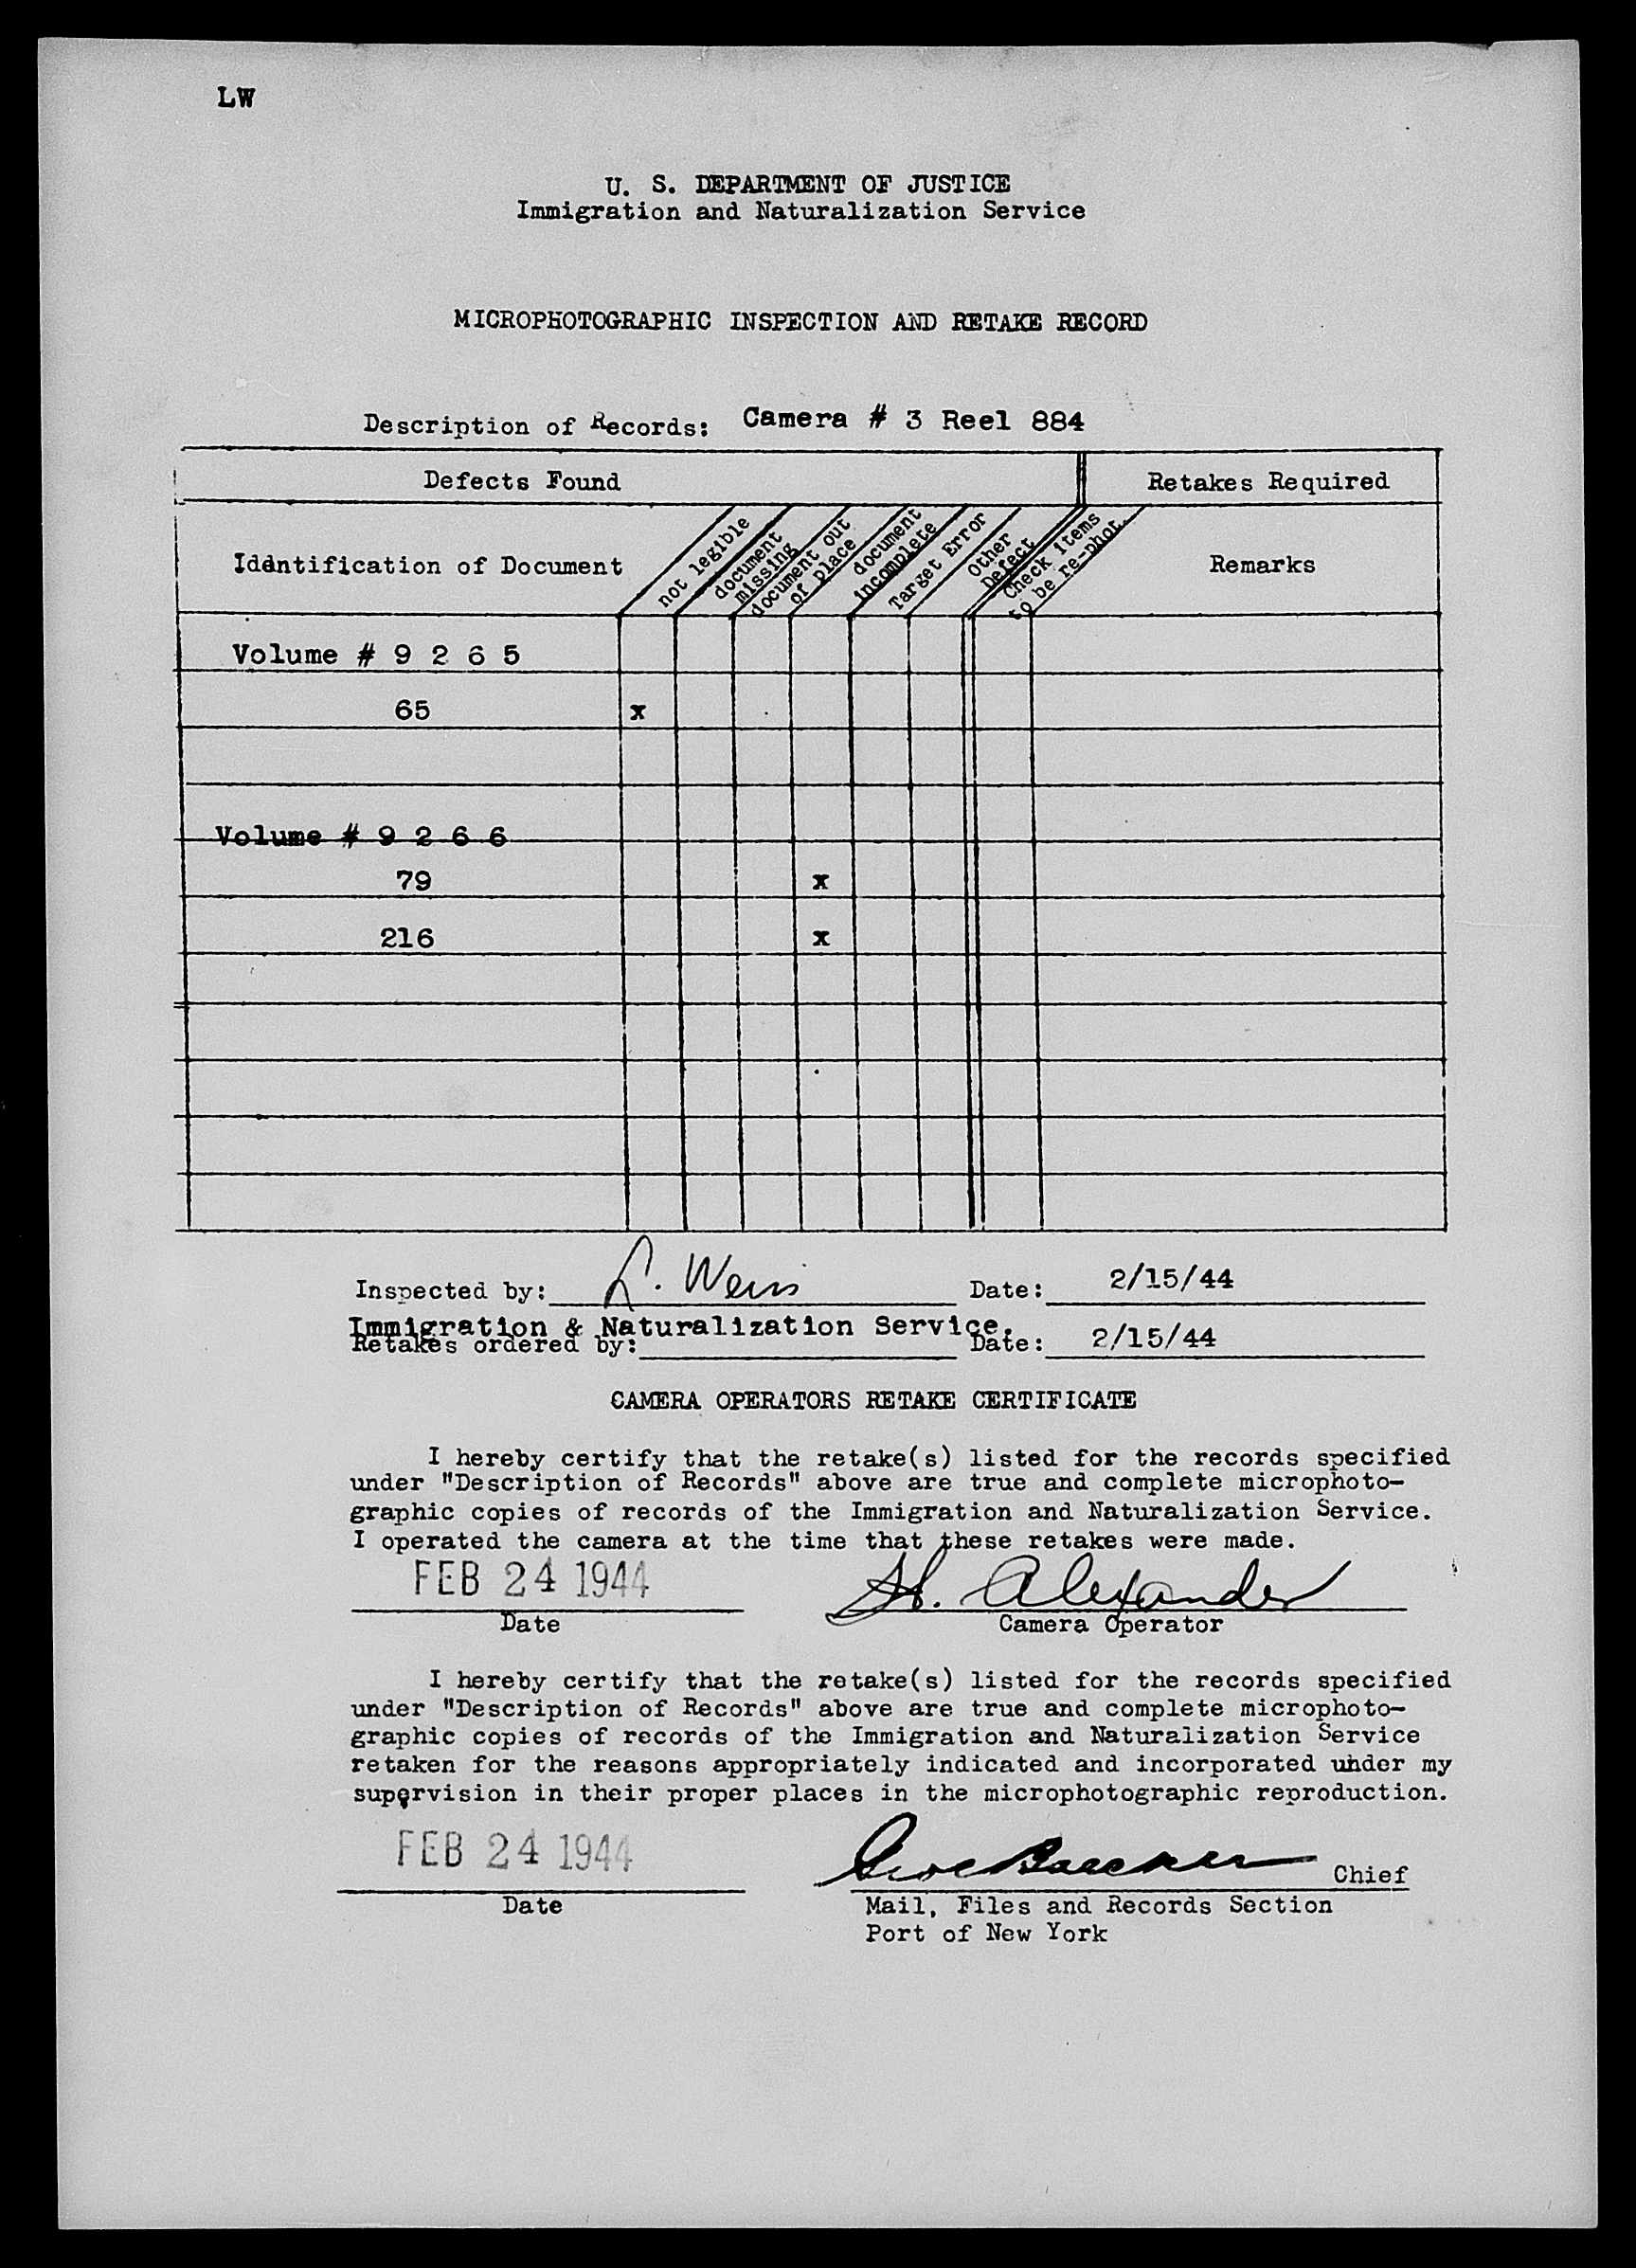 LW
U. S. DEPARTMENT OF JUSTICE
Immigration and Naturalization Service
MICROPHOTOGRAPHIC INSPECTION AND RETAKE RECORD
Description of Records: Camera # 3 Reel 884
Defects Found Retakes Required
Iddntification of Document
not legible
document missing
document out of place
document incomplete
Target Error
Other Defect
Check items to be re-phot.
Remarks
Volume # 9 2 6 5
65 x
Volume # 9 2 6 6
79 x
216 x
Inspected by: L. Weis Date: 2/15/44
Immigration & Naturalization Service.
Retakes ordered by: Date: 2/15/44
CAMERA OPERATORS RETAKE CERTIFICATE
I hereby certify that the retake(s) listed for the records specified
under "Description of Records" above are true and complete microphoto-
graphic copies of records of the Immigration and Naturalization Service.
I operated the camera at the time that these retakes were made.
FEB 24 1944 H. Alexander
Date Camera Operator
I hereby certify that the retake(s) listed for the records specified
under "Description of Records" above are true and complete microphoto-
graphic copies of records of the Immigration and Naturalization Service
retaken for the reasons appropriately indicated and incorporated under my
supervision in their proper places in the microphotographic reproduction.
FEB 24 1944 Chief
Date Mail, Files and Records Section
Port of New York